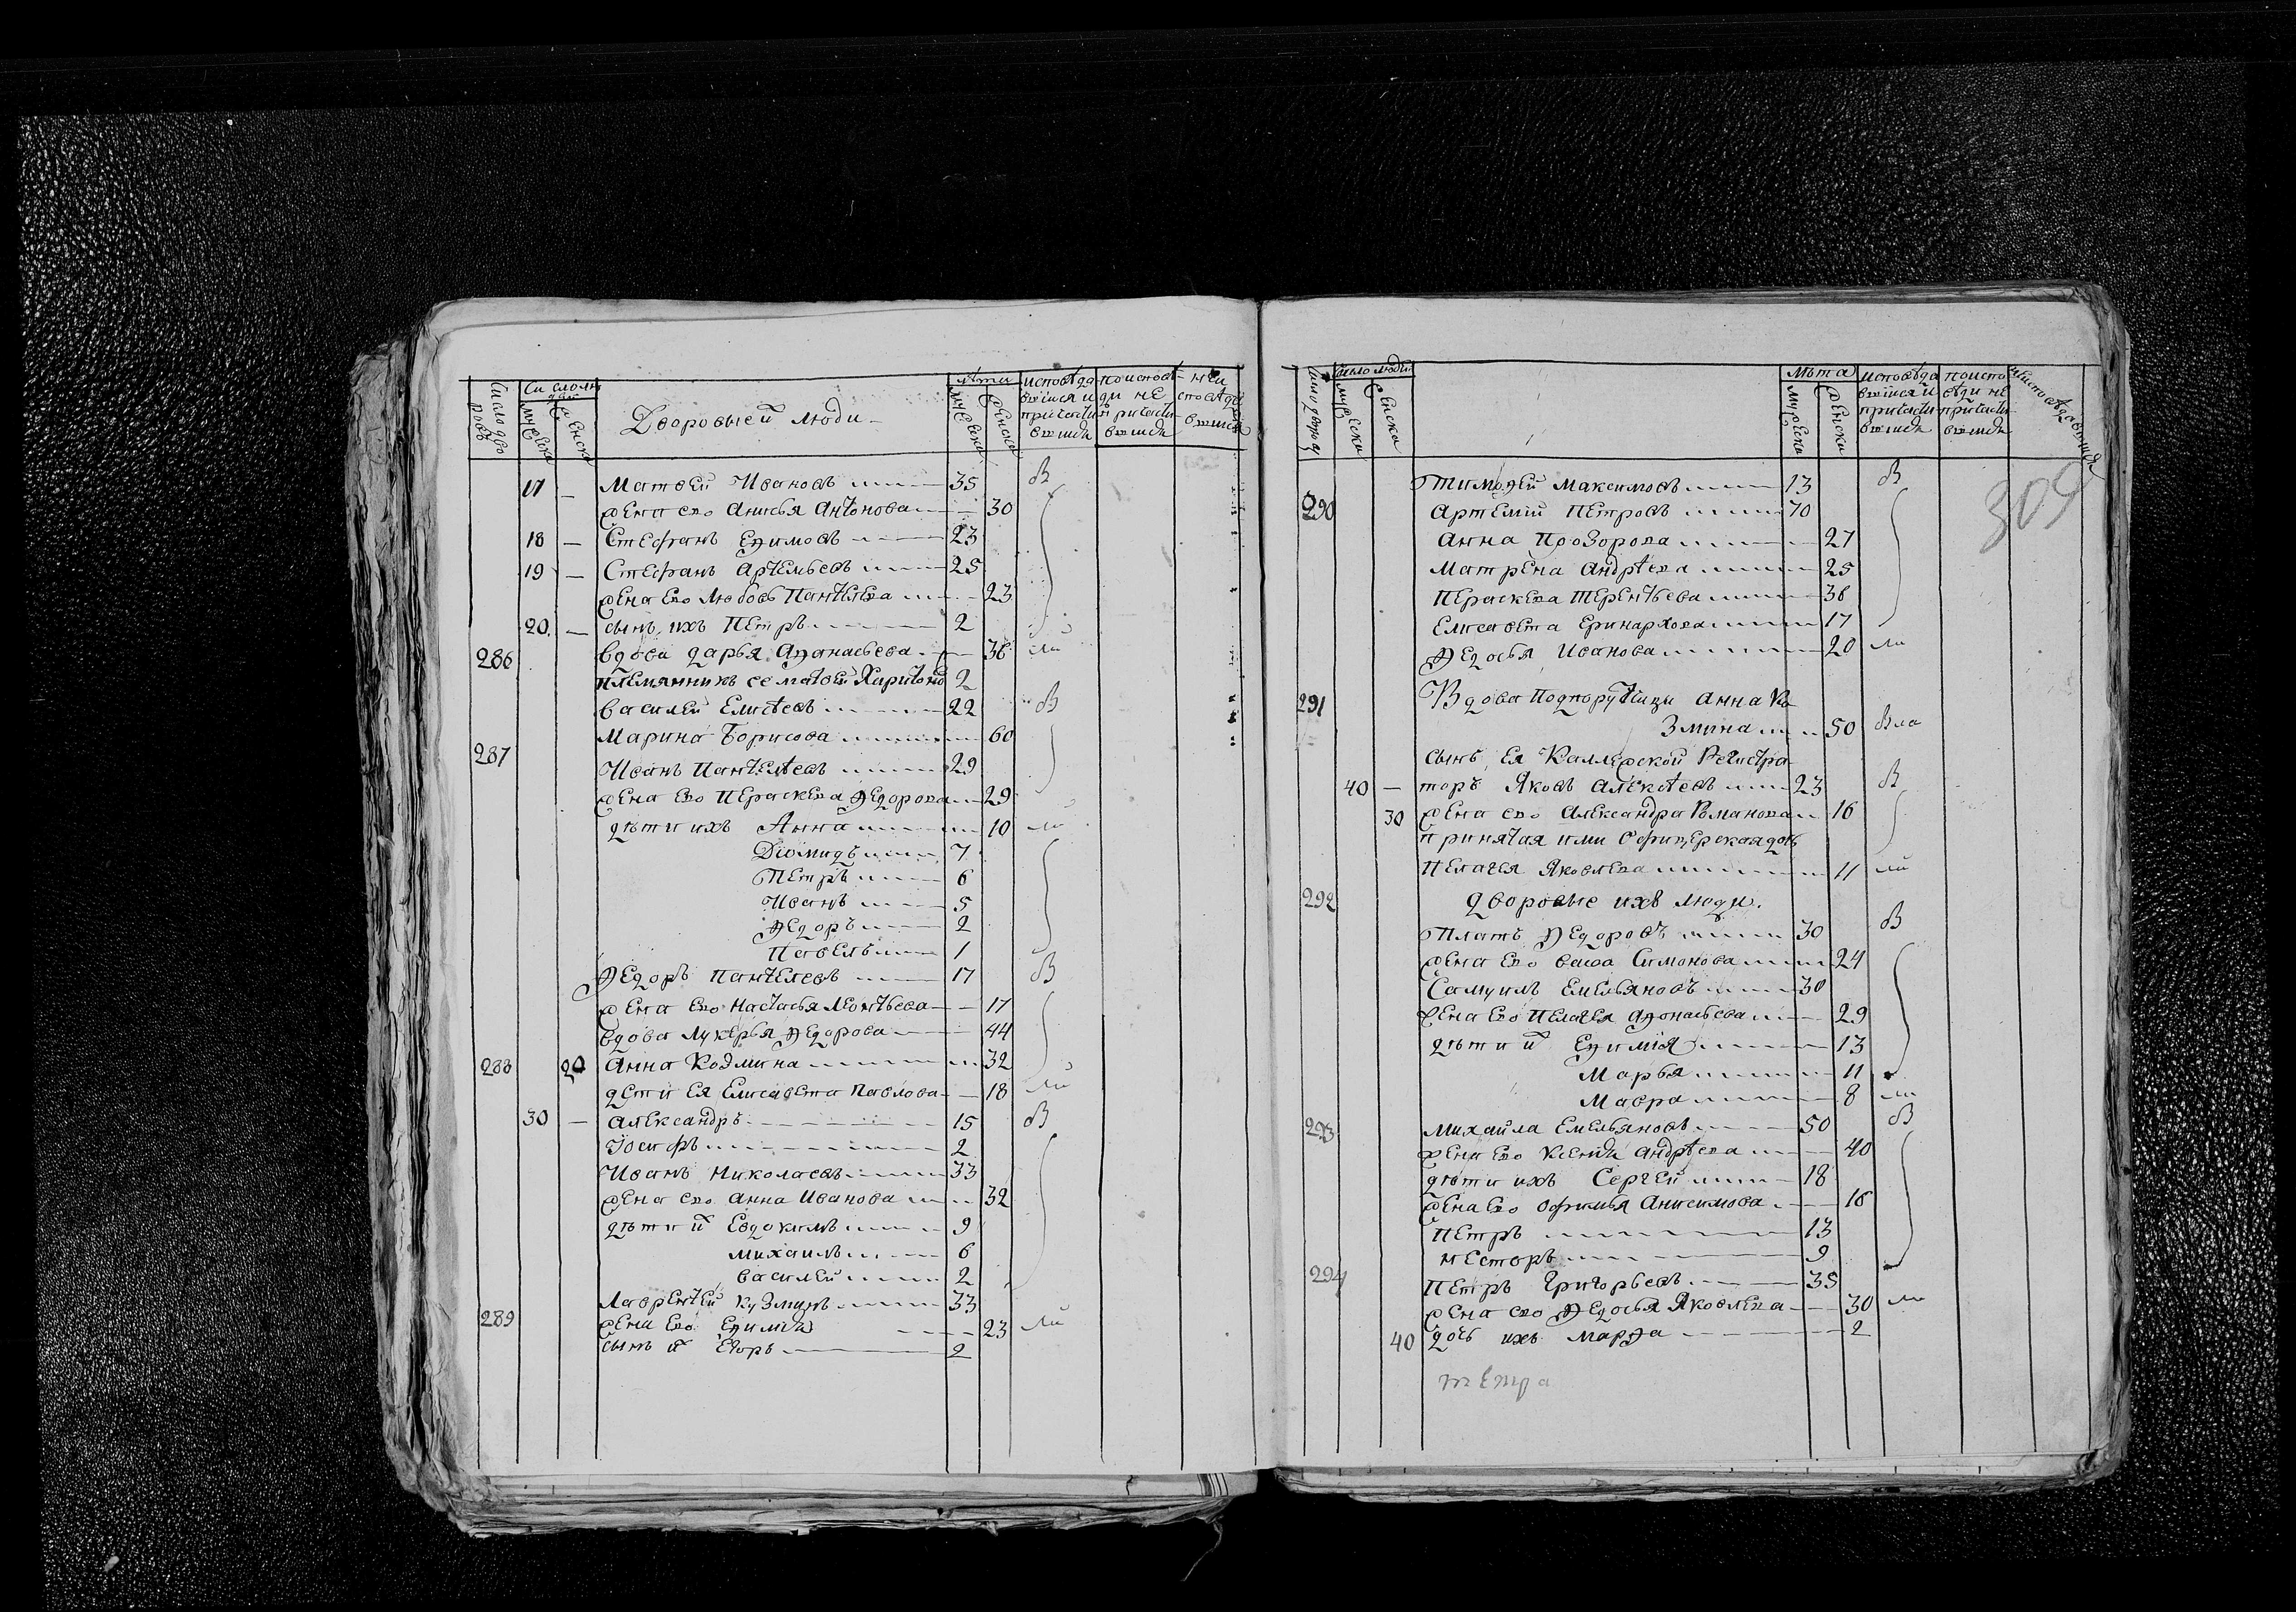 Число дво ровъ
Число лю дей
мужеска
женска
Дворовыеи люди
лѣта
мужеска
женска
исповѣда вшїися и причасти вшїися
поисповѣ ди не причасти вшїися
неи сповѣда вшїися
17 — Матвѣй Ивановъ 35 В
жена ево Анисья Антонова 30
18 — Стефанъ Ефимовъ 23
19 — Стефанъ Артемьевъ 25
жена ево Любовь Пантелѣева 23
20 — сынъ ихъ Петръ 2
286 вдова дарья Афонасьева 36 ли
племянникъ ее матвеи Харитоно 2
василеи Елисѣевъ 22 В
Марина Борисова 60
287
Иванъ Пантелѣевъ 29
жена ево Пераскева Федорова 29
дѣти ихъ Анна 10 ли
Дїомидъ 7
Петръ 6
Иванъ 5
Федоръ 2
Павелъ 1
Федоръ Пантелеевъ 17 В
жена ево настасья Леонтьева 17
вдова лукерья Федорова 44
288 20 Анна Козмина 32
дети ея Елисавета Павлова 18 ли
30 — александръ 15 В
Іосифъ 2
Иванъ Николаевъ 33
жена ево анна Иванова 32
дѣти и Евдокимъ 9
михаилъ 6
василеи 2
Лаврентеи кузминъ 33
289 жена ево Ефимія 23 ли
сынъ и Егоръ 2
число дворовъ
число людеи
мужеска
женска
Лѣта
мужеска
женска
исповѣда вшїися и причасти вшїися
поиспо вѣди не причасти вшїися
неисповѣдавшїися
309
Тимофеи Максимовъ 13 В
290 Артемїи Петровъ 70
анна Прозорова 27
матрена андрѣева 25
Пераскева Терентьева 36
Елисавета Еринархова 17
Федосья Иванова 20 ли
291 Вдова Подпорутчица анна Ко
змина 50 Вла
сынъ ея Коллежской Регистра
40 — торъ Яковъ алексѣевъ 23 В
30 жена ево александра Романова 16
принятая ими офицерская дочь
Пелагея Яковлева 11 ли
292 дворовые ихъ люди.
Платъ Федоровъ 30 В
жена ево васса Симонова 24
Самуилъ Емельяновъ 30
жена ево Пелагея афонасьева 29
дѣти и Ефимія 13
Марья 11
Мавра 8 ли
293 михаила Емельяновъ 50 В
жена ево ксенія андрѣева 40
дѣти ихъ Сергеи 18
жена ево офимья Анисимова 16
Петръ 13
несторъ 9
294 Петръ Григорьевъ 35
жена ево Федосья Яковлева 30 ли
40 дочь ихъ марфа 2
тетра